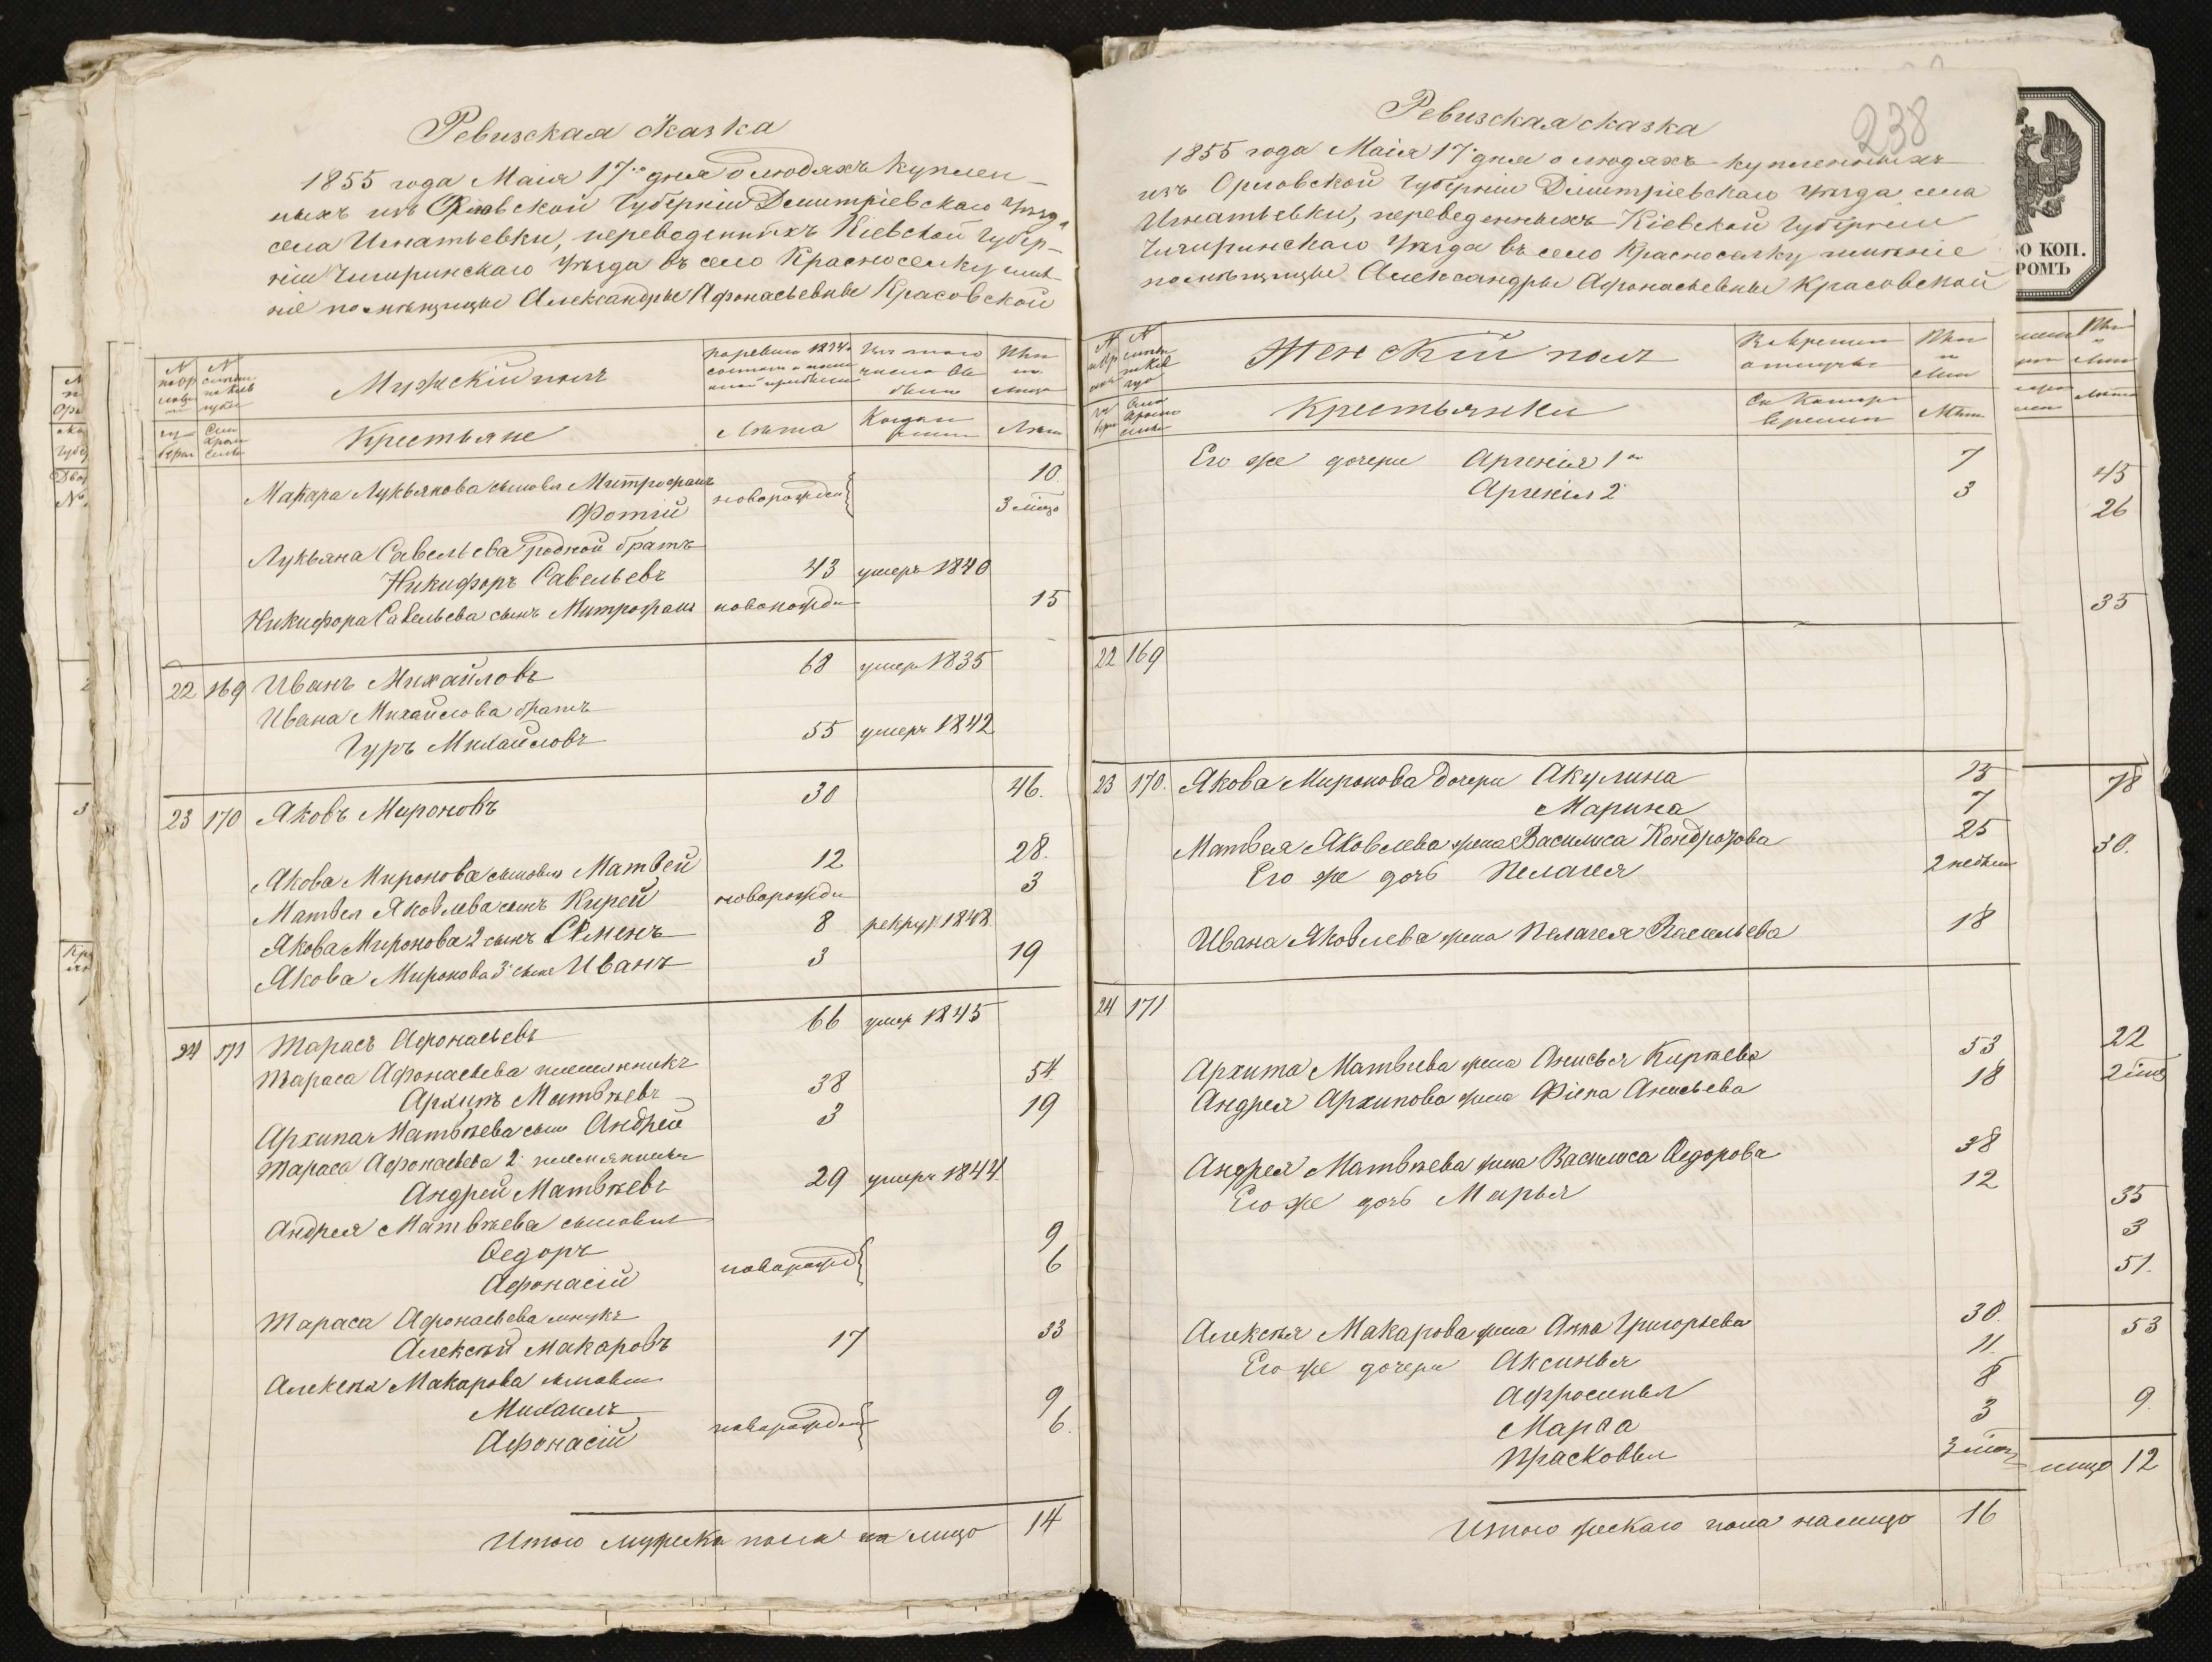 Ревизская сказка
1855 года Маия 17го дня о людяхъ куплен-
ныхъ изъ Орловской Губерніи Димитріевскаго Уѣзда
села Игнатьевки, переведенныхъ Кіевской Губер-
ніи Чигиринскаго Уѣзда въ село Красноселку имѣ-
ніе помѣщицы Александры Афонасьевны Красовской
Мужескій полъ
Крестьяне
Лѣта
Лѣта
Макара Лукьянова сыновья Митрофанъ новорожден 10
Фотій 3 мѣсяц
Лукьяна Савельева родной братъ
Никифоръ Савельевъ 43 умеръ 1840
Никифора Савельева сынъ Митрофанъ новорожден 15
22 169 Иванъ Михайловъ 68 умер 1835
Ивана Михайлова братъ
Гуръ Михайловъ 55 умеръ 1842
23 170 Яковъ Мироновъ 30 46.
Якова Миронова сыновья Матвей 12 28.
Матвея Яковлева сынъ Кирей новорожден 3
Якова Миронова 2 сынъ Семенъ 8 рекрут 1848
Якова Миронова 3й сынъ Иванъ 3 19
24 171 Тарасъ Афонасьевъ 66 умер 1845
Тараса Афонасьева племянникъ
Архипъ Матвѣевъ 38 54.
Архипа Матвѣева сынъ Андрей 3 19
Тараса Афонасьева 2й племянникъ
Андрей Матвѣевъ 29 умеръ 1844.
Андрея Матвѣева сыновья
Ѳедоръ новорожд 9
Афонасій 6
Тараса Афонасьева внукъ
Алексѣй Макаровъ 17 33
Алексѣя Макарова сыновья
Михаилъ новорожден 9
Афонасій 6.
Итого мужеска пола на лицо 14
238
Ревизская сказка
1855 года Маія 17 дня о людяхъ купленныхъ
изъ Орловской Губерніи Димитріевскаго Уѣзда села
Игнатьевки, переведенныхъ Кіевской Губерніи
Чигиринскаго Уѣзда въ село Красноселку имѣніе
помѣщицы Александры Афонасьевны Красовской
Женскій полъ
Крестьянки
Во временной отлучкѣ
Лѣта
Его же дочери Аргенія 1я 7
Аргенія 2 3
22 169
23 170. Якова Миронова дочери Акулина 13
Марина 7
Матвея Яковлева жена Василиса Кондротова 25
Его же дочь Пелагея 2 недѣли
Ивана Яковлева жена Пелагея Васильева 18
24 171
Архипа Матвѣева жена Анисья Кирѣева 53
Андрея Архипова жена Фіена Анисьева 18
Андрея Матвѣева жена Василиса Ѳедорова 38
Его же дочь Марья 12
Алексѣя Макарова жена Анна Григорьева 30.
Его же дочери Аксинья 11.
Афросинья 8
Марѳа 3
Прасковья 3 мѣс
Итого женскаго пола налицо 16
КОП.
РОМЪ
43
26
35
78
30.
22
35
3
51.
53
9
12